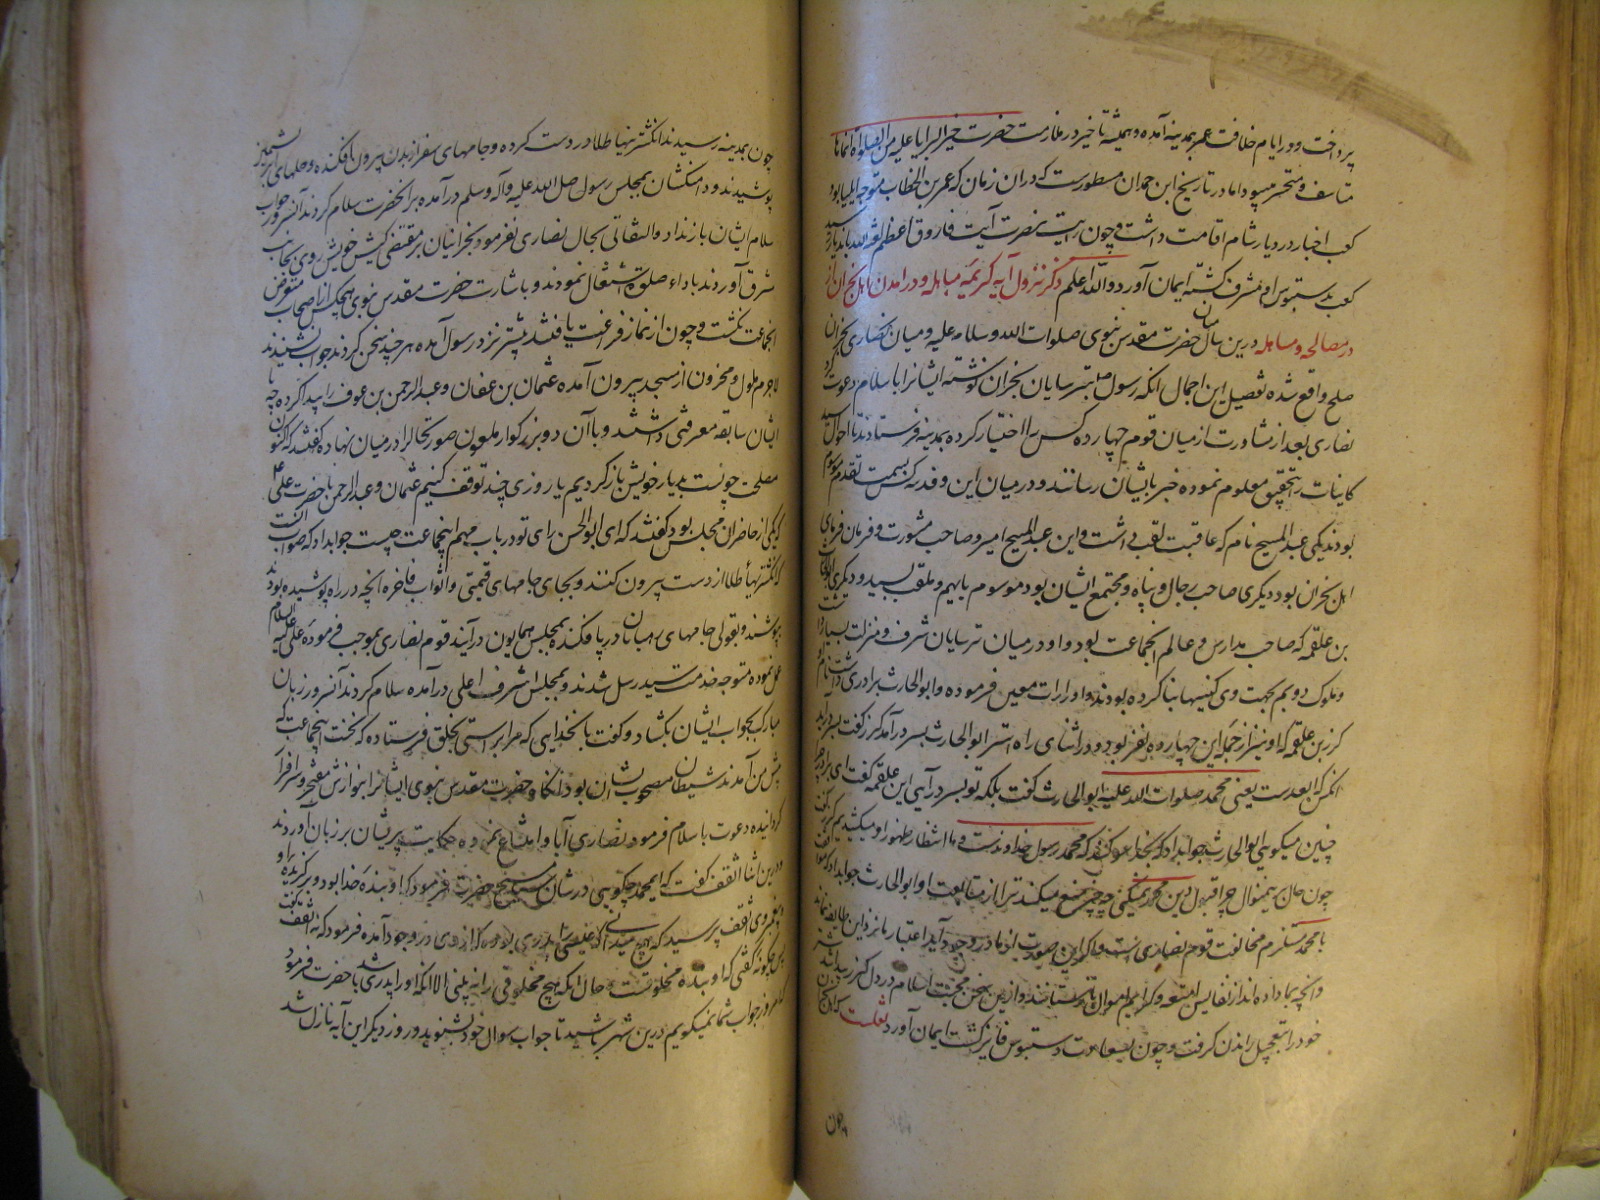 پرداخت و در ایام خلافت عمر بمدینه آمده و همیشه تاخیر در ملازمت حضرت خیر البرایا علیه من الصلوة انماها
متاسف و متحسر میبود اما در تاریخ ابن حمدان مسطورست که در ان زمان که عمر بن الخطاب متوجه ایلیا بود
کعب اخبار در دیار شام اقامت داشت و چون رایت نصرت آیت فاروق اعظم بلاد رسید
کعب بدستبوس او مشرف گشته ایمان آورد والله اعلم ذکر نزول آیه کریمه مباهله و در امدن اهل نجران از
در مصالحه و مساهله درین سال میان حضرت مقدس نبوی صلوات الله وسلامه علیه و میان نصاری نجران
صلح واقع شده تفصیل این اجمال انکه رسول بترسایان نجران نوشته ایشانرا باسلام دعوت کرد
نصاری بعد از مشاورت از میان قوم چهارده کس را اختیار کرده بمدینه فرستادند تا احوال سید
کاینات را بتحقیق معلوم نموده خبر بایشان رسانند و در میان این وفد سه کس بسمت تقدم موسوم
بودند یکی عبد المسیح نام که عاقبت لقب داشت و این عبد المسیح امیر و صاحب مشورت و فرمان فرمای
اهل نجران بود دیگری صاحب رحال و پناه و مجتمع ایشان بود موسوم بایهم و ملقب بسید و دیگری ابو الحارث
بن علقمه که صاحب مدارس و عالم انجماعت بود و او در میان ترسایان شرف و منزلت بسیار داشت
و ملوک روم بجهت وی کنیسها بنا کرده بودند و اورارات معین فرموده و ابو الحارث برادری داشت نام او
کرز بن علقمه که او نیز از جمله این چهارده نفر بود و در اثنای راه استر ابو الحارث بسر در آمد کرز گفت بسر در آید
انکس که ابعدست یعنی محمد صلوات الله علیه ابو الحارث گفت بلکه تو بسر در آیی ابن علقمه گفت ای برادر چرا
چنین میگویی ابو الحارث جوابداد که بخدا سوگند که محمد رسول خداوندست و ما انتظار ظهور او میکشیدیم کرز گفت
چون حال برینمنوال است چرا قبول دین محمد نمیکنی چه چیز منع میکند ترا از متابعت او ابو الحارث جوابداد که
با محمد مستلزم مخالفت قوم نصاری است و اگر این صورت از ما در وجود آید اعتبار ما نزد این طایفه نماند
و انچه بما داده اند از نفایس امتعه و کرایم اموال باز ستانند و ازین سخن محبت اسلام در دل کرز پیدا شد
خود را بتعجیل راندن گرفت و چون بسعادت دستبوس فایز گشت ایمان آورد
چون
چون بمدینه رسیدند انگشتریها طلا در دست کرده و جامهای سفر از بدن بیرون افکنده و حلهای ابریشمین
پوشیدند و دامنکشان بمجلس رسول صلی الله علیه وآله وسلم در آمده بر انحضرت سلام کردند آنسرور جواب
سلام ایشان باز نداد و التفاتی بحال نصاری نفرمود نجرانیان بر مقتضی کیش خویش روی بجانب
مشرق آوردند باداء صلوة اشتغال نمودند و باشارت حضرت مقدس نبوی هیچکس از اصحاب متعرض
انجماعت نگشت و چون از نماز فراغت یافتند پیشتر نزد رسول آمده هر چند سخن کردند جواب نشنیدند
لاجرم ملول و محزون از مسجد بیرون آمده عثمان بن عفان و عبد الرحمن بن عوف را پیدا کرده چه با
ایشان سابقه معرفتی داشتند و با آن دو بزرگوار ملعون صورتحالرا در میان نهاده گفتند که اکنون
مصلحت چونست بدیار خویش باز گردیم یا روزی چند توقف کنیم عثمان و عبد الرحمن با حضرت علی
که یکی از حاضران مجلس بود گفتند که ای ابو الحسن رای تو در باب مهم اینجماعت چیست جوابداد که صواب انست
که انگشتریهاء طلا از دست بیرون کنند و بجای جامهای قیمتی و اثواب فاخره انچه در راه پوشیده بودند
بپوشند و بقولی جامهای رهبانان در بر افکنده بمجلس همایون در آیند قوم نصاری بموجب فرموده علی علیه السلام
عمل نموده متوجه خدمت سید رسل شدند و بمجلس اشرف اعلی در آمده سلام کردند آنسرور زبان
مبارک بجواب ایشان بگشاد و گفت بانخدایی که مرا براستی بخلق فرستاده که نخست اینجماعت که
پیش من آمدند شیطان مصحوب ایشان بود انگاه حضرت مقدس نبوی ایشانرا بنوازش مفتخر و سرافراز
گردانیده دعوت باسلام فرمود نصاری ابا و امتناع نموده حکایت پریشان بر زبان آوردند
درین اثنا اثقف گفت که ایمحمد چگویی در شان مسیح حضرت فرمود که او بنده خدا بود و برگزیده او
اثقف پرسید که هیچ میدانی که عیسی را پدری بوده که از وی در وجود آمده فرمود که نه اثقف گفت
پس چگونه گفتی که او بنده مخلوقست حال انکه هیچ مخلوقی را نه بینی الا انکه او را پدری باشد حضرت فرمود
که امروز جواب شما نمیگویم درین شهر باشید تا جواب سوال خود بشنوید و روز دیگر این آیه نازل شد